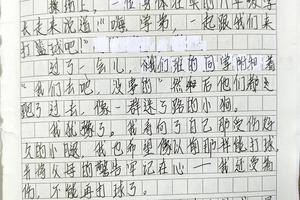 操场上，一位身体壮实的六年级学
长走来说道“嗨，学弟，一起跟我们来
打篮球吧！”
过了一会儿，我们班的同学附和着
“我们去吧，没事的”然后他们都
跑了过去，像一群迷了路的小狗。
我犹豫了。我看向了自己那受伤好
久的小腿，我也希望像以前那样能打球，
母的警告牢记在心——我还受着
伤，不能再打球了